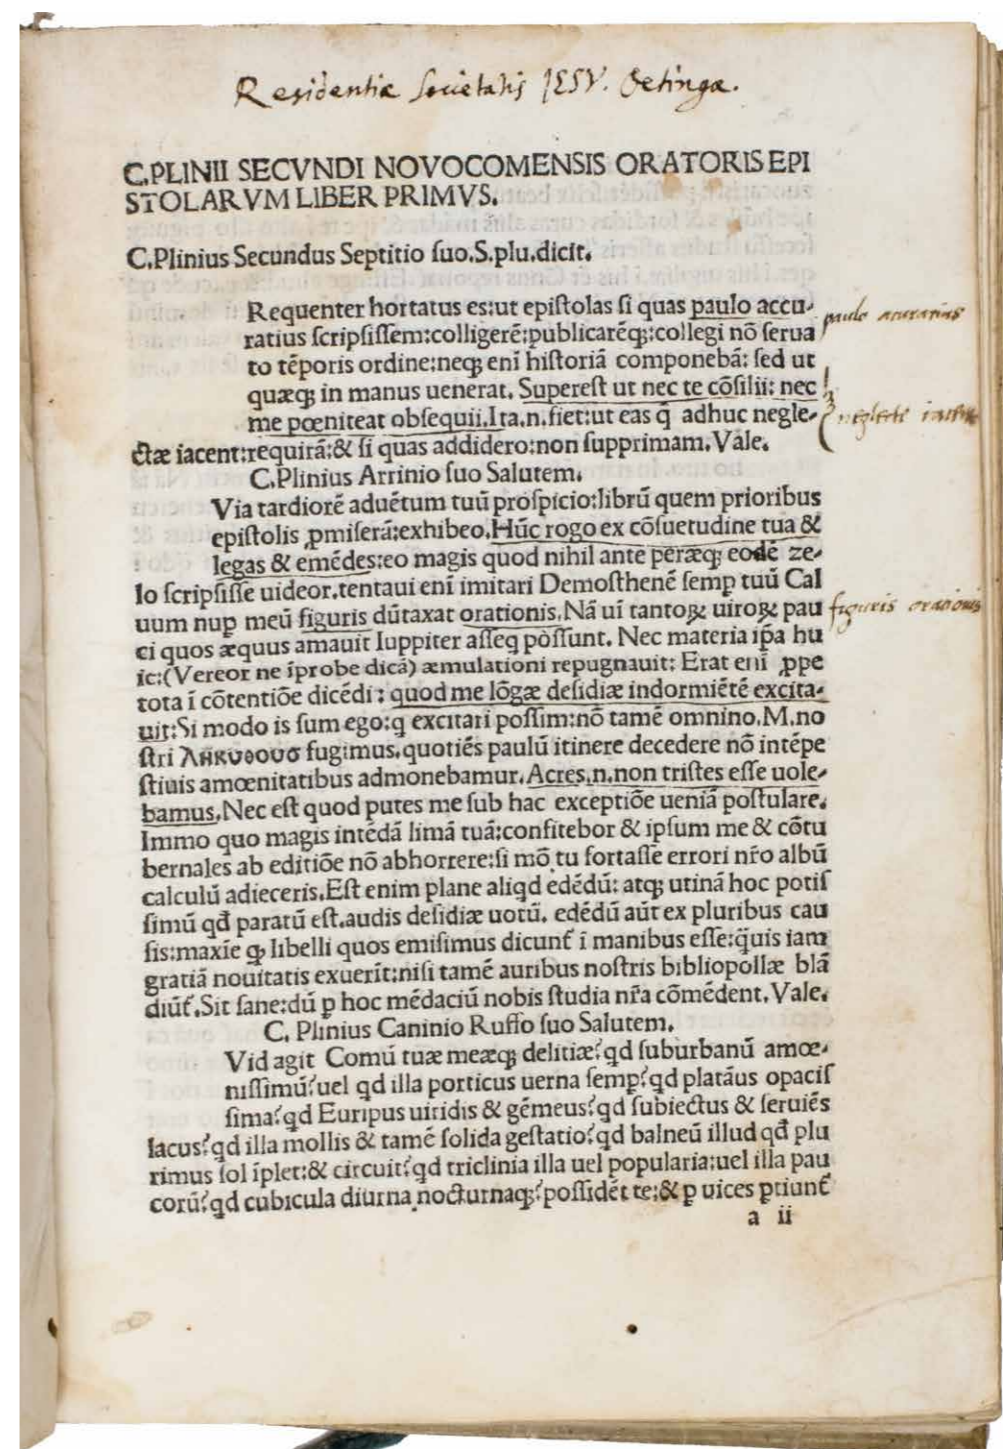 Residentiæ Societatis JESV. Oetingæ.
C.PLINII SECVNDI NOVOCOMENSIS ORATORIS EPI
STOLARVM LIBER PRIMVS.
C.Plinius Secundus Septitio ſuo.S.plu.dicit.
Requenter hortatus es:ut epiſtolas ſi quas paulo accu-
ratius ſcripſiſſem:colligerē:publicarēq;:collegi nō ſerua
to tēporis ordine:neq; enī hiſtoriā componebā: ſed ut
quæq; in manus uenerat. Supereſt ut nec te cōſilii: nec
me pœniteat obſequii.Ita.n.fiet:ut eas q̄ adhuc negle-
ctæ iacent:requirā:& ſi quas addidero:non ſupprimam.Vale.
paulo accuratius
neglectæ iacent
C.Plinius Arrinio ſuo Salutem.
Via tardiorē aduētum tuū proſpicio:librū quem prioribus
epiſtolis ꝓmiſerā:exhibeo.Hūc rogo ex cōſuetudine tua &
legas & emēdes:eo magis quod nihil ante peræq; eodē ze-
lo ſcripſiſſe uideor.tentaui enī imitari Demoſthenē ſemꝑ tuū Cal
uum nuꝑ meū figuris dūtaxat orationis.Nā uī tantoꝝ uiroꝝ pau
ci quos æquus amauit Iuppiter aſſeq̄ poſſunt. Nec materia ip̄a hu
ic:(Vereor ne īprobe dicā) æmulationi repugnauit: Erat enī ꝓpe
tota ī cōtentiōe dicēdi: quod me lōgæ deſidiæ indormiētē excita-
uit:Si modo is ſum ego:q excitari poſſim:nō tamē omnino.M.no
ſtri ληκυθουσ fugimus.quotiēs paulū itinere decedere nō intēpe
ſtiuis amœnitatibus admonebamur.Acres.n.non triſtes eſſe uole-
bamus.Nec eſt quod putes me ſub hac exceptiōe ueniā poſtulare.
Immo quo magis intēdā limā tuā:confitebor & ipſum me & cōtu
bernales ab editiōe nō abhorrere:ſi mō tu fortaſſe errori nr̄o albū
calculū adieceris.Eſt enim plane aliqd edēdū: atq; utinā hoc potiſ
ſimū qđ paratū eſt.audis deſidiæ uotū. edēdū aūt ex pluribus cau
ſis:maxīe ꝙ libelli quos emiſimus dicunt̄ ī manibus eſſe:q̄uis iam
gratiā nouitatis exuerīt:niſi tamē auribus noſtris bibliopollæ blā
diūt̄.Sit ſane:dū ꝑ hoc mēdaciū nobis ſtudia nr̄a cōmēdent.Vale.
figuris orationis
C. Plinius Caninio Ruffo ſuo Salutem.
Vid agit Comū tuæ meæq; delitiæ?qd ſuburbanū amœ-
niſſimū?uel qd illa porticus uerna ſemꝑ?qd platāus opaciſ
ſima?qd Euripus uiridis & gēmeus?qd ſubiectus & ſeruiēs
lacus?qd illa mollis & tamē ſolida geſtatio?qd balneū illud qđ plu
rimus ſol īplet:& circuit?qd triclinia illa uel popularia:uel illa pau
corū?qd cubicula diurna nocturnaq;?poſſidēt te:& ꝑ uices ꝑtiunt̄
a ii